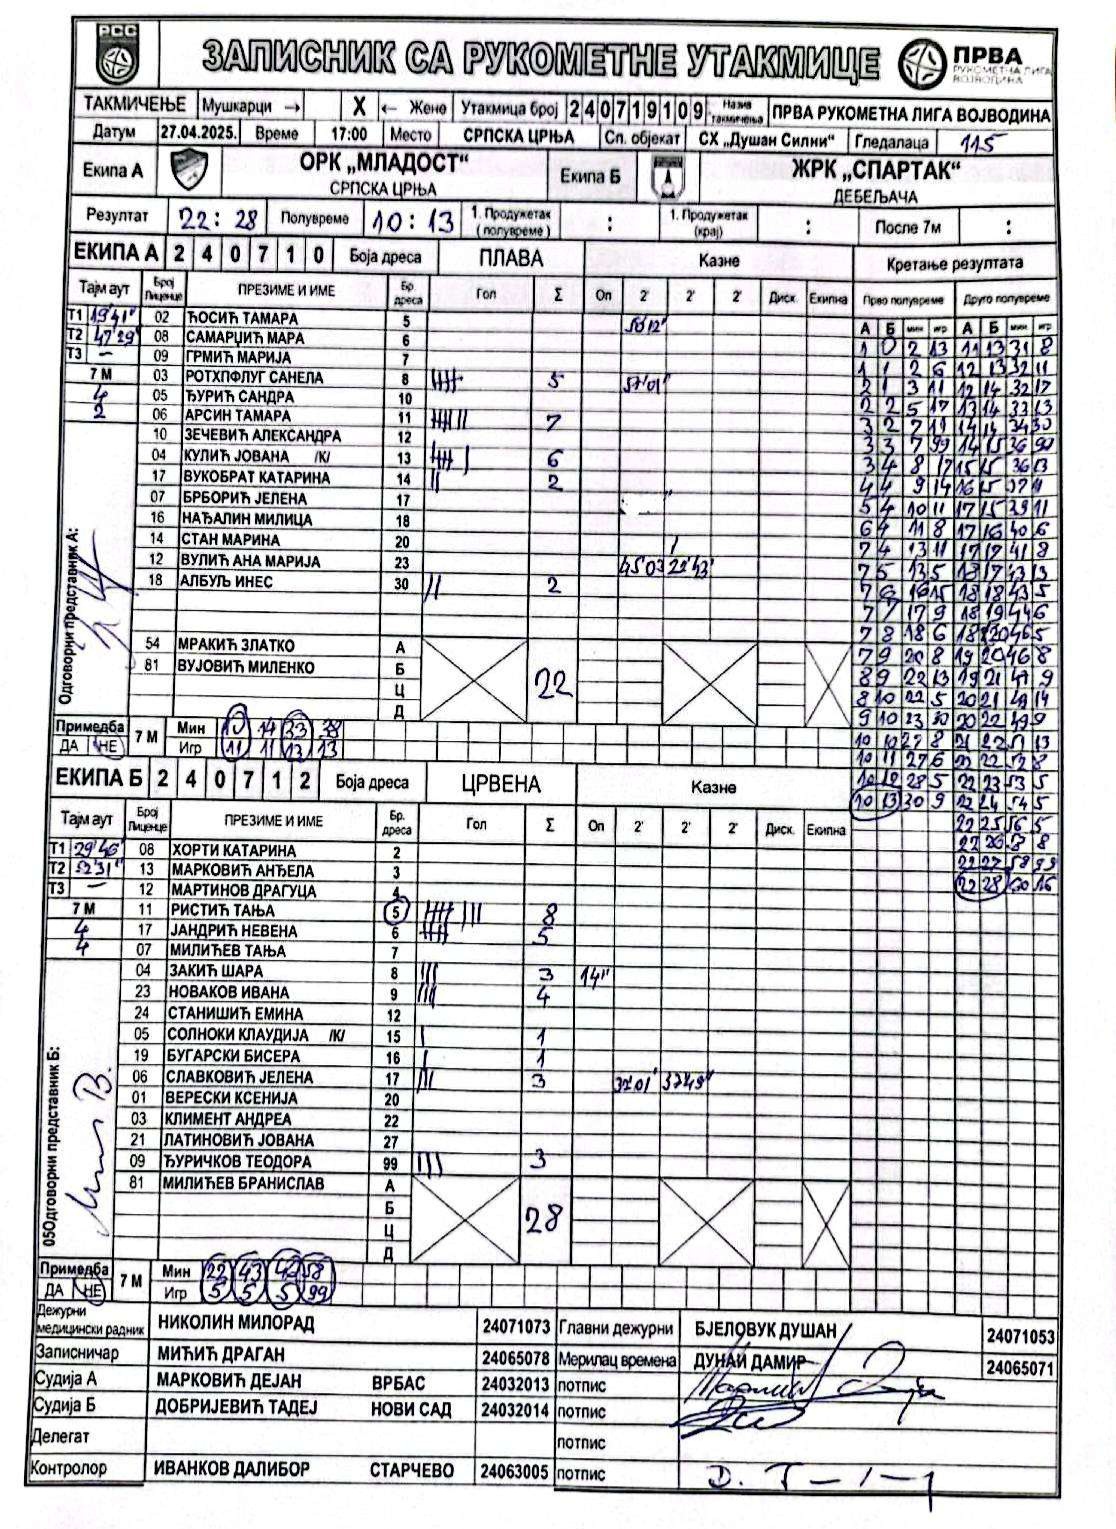 РСС
ЗАПИСНИК СА РУКОМЕТНЕ УТАКМИЦЕ
ПРВА
РУКОМЕТНА ЛИГА
ВОЈВОДИНА
ТАКМИЧЕЊЕ Мушкарци → X ← Жене Утакмица број 240719109 Назив такмичења ПРВА РУКОМЕТНА ЛИГА ВОЈВОДИНА
Датум 27.04.2025. Време 17:00 Место СРПСКА ЦРЊА Сп. објекат СХ „Душан Силни“ Гледалаца 115
Екипа А ОРК „МЛАДОСТ“ СРПСКА ЦРЊА Екипа Б ЖРК „СПАРТАК“ ДЕБЕЉАЧА
Резултат 22:28 Полувреме 10:13 1. Продужетак (полувреме) : 1. Продужетак (крај) : После 7м :
ЕКИПА А 240710 Боја дреса ПЛАВА Казне Кретање резултата
Тајм аут Број Лиценце ПРЕЗИМЕ И ИМЕ Бр. дреса Гол Σ Оп 2' 2' 2' Диск. Екипна Прво полувреме Друго полувреме
А Б мин игр А Б мин игр
Т1 19'41" 02 ЋОСИЋ ТАМАРА 5 50'12"
Т2 47'29" 08 САМАРЏИЋ МАРА 6
Т3 – 09 ГРМИЋ МАРИЈА 7
7 М 03 РОТХПФЛУГ САНЕЛА 8 5 57'01"
4 05 ЂУРИЋ САНДРА 10
2 06 АРСИН ТАМАРА 11 7
10 ЗЕЧЕВИЋ АЛЕКСАНДРА 12
04 КУЛИЋ ЈОВАНА /К/ 13 6
17 ВУКОБРАТ КАТАРИНА 14 2
07 БРБОРИЋ ЈЕЛЕНА 17
16 НАЂАЛИН МИЛИЦА 18
14 СТАН МАРИНА 20
12 ВУЛИЋ АНА МАРИЈА 23 45'03
18 АЛБУЉ ИНЕС 30 2
54 МРАКИЋ ЗЛАТКО А
81 ВУЈОВИЋ МИЛЕНКО Б
Ц
Д
22
Одговорни представник А:
1 0 2 13 11 13 31 8
1 1 2 6 12 13 32 11
2 1 3 11 12 14 32 17
2 2 5 17 13 14 33 13
3 2 7 11 14 14 34 30
3 3 7 99 14 15 36 90
3 4 8 17 15 15 36 13
4 4 9 14 16 15 37 11
5 4 10 11 17 15 39 11
6 4 11 8 17 16 40 6
7 4 13 11 17 17 41 8
7 5 13 5 18 17 43 13
7 6 16 15 18 18 43 5
7 7 17 9 18 19 44 6
7 8 18 6 18 20 46 5
7 9 20 8 19 20 46 8
8 9 22 13 19 21 47 9
8 10 22 5 20 21 49 14
9 10 23 30 20 22 49 9
10 10 27 8 21 22 51 13
10 11 27 6 22 22 53 8
10 12 28 5 22 23 53 5
10 13 30 9 22 24 54 5
22 25 56 5
22 26 58 8
22 27 58 99
22 28 60 16
Примедба 7 М Мин 10 14 33 38
ДА НЕ Игр 11 11 13 13
ЕКИПА Б 240712 Боја дреса ЦРВЕНА Казне
Тајм аут Број Лиценце ПРЕЗИМЕ И ИМЕ Бр. дреса Гол Σ Оп 2' 2' 2' Диск. Екипна
Т1 29'46" 08 ХОРТИ КАТАРИНА 2
Т2 52'31" 13 МАРКОВИЋ АНЂЕЛА 3
Т3 – 12 МАРТИНОВ ДРАГУЦА 4
7 М 11 РИСТИЋ ТАЊА 5 8
4 17 ЈАНДРИЋ НЕВЕНА 6 5
4 07 МИЛИЋЕВ ТАЊА 7
04 ЗАКИЋ ШАРА 8 3 14'
23 НОВАКОВ ИВАНА 9 4
24 СТАНИШИЋ ЕМИНА 12
05 СОЛНОКИ КЛАУДИЈА /К/ 15 1
19 БУГАРСКИ БИСЕРА 16 1
06 СЛАВКОВИЋ ЈЕЛЕНА 17 3 37'49"
01 ВЕРЕСКИ КСЕНИЈА 20
03 КЛИМЕНТ АНДРЕА 22
21 ЛАТИНОВИЋ ЈОВАНА 27
09 ЂУРИЧКОВ ТЕОДОРА 99 3
81 МИЛИЋЕВ БРАНИСЛАВ А
Б
Ц
Д
28
05Одговорни представник Б:
Примедба 7 М Мин 22 43 42 58
ДА НЕ Игр 5 5 5 99
Дежурни медицински радник НИКОЛИН МИЛОРАД 24071073 Главни дежурни БЈЕЛОВУК ДУШАН 24071053
Записничар МИЋИЋ ДРАГАН 24065078 Мерилац времена ДУНАИ ДАМИР 24065071
Судија А МАРКОВИЋ ДЕЈАН ВРБАС 24032013 потпис
Судија Б ДОБРИЈЕВИЋ ТАДЕЈ НОВИ САД 24032014 потпис
Делегат потпис
Контролор ИВАНКОВ ДАЛИБОР СТАРЧЕВО 24063005 потпис